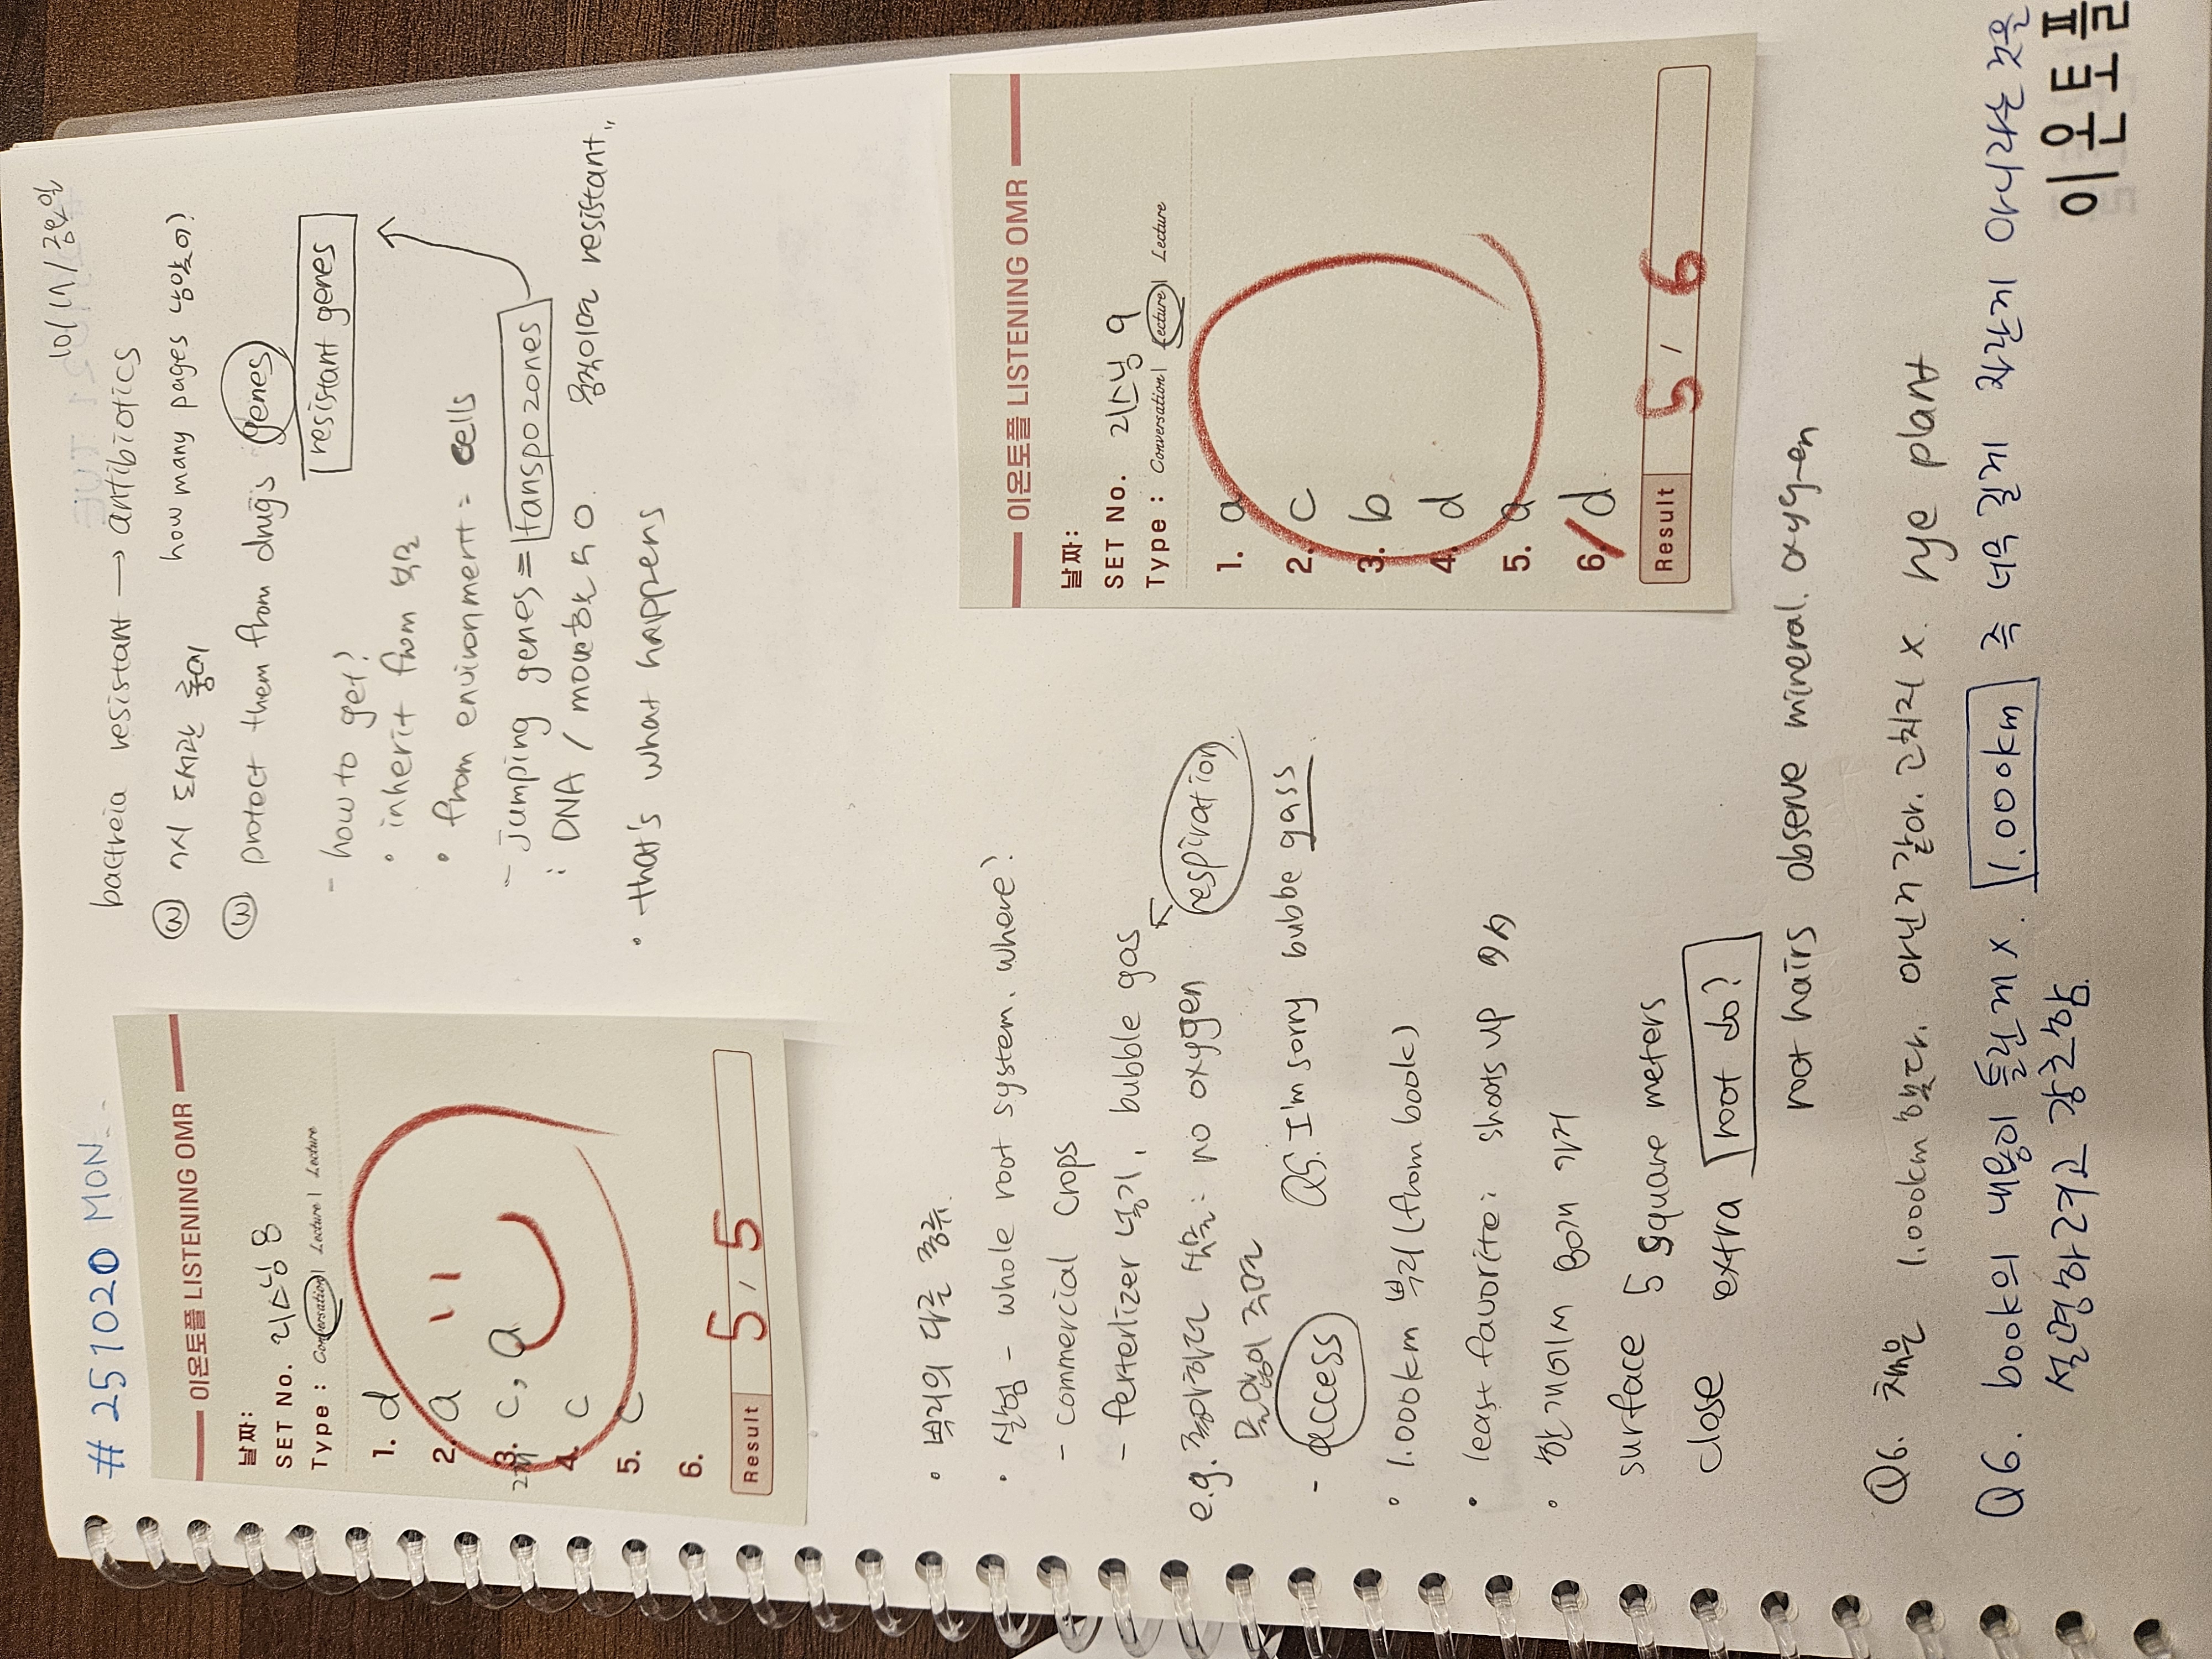 # 251020 MON.
이온토플 LISTENING OMR
날짜:
SET No. 리스닝 8
Type : Conversation | Lecture | Lecture
1. d
2. a
3. c, a
2개
4. c
5. c
6.
Result 5 / 5
10/17/금요일
bactreia resistant → antibiotics
how many pages 남았어?
protect them from drugs genes
resistant genes
- how to get?
• inherit from 부모
• from environment = cells
- jumping genes = tanspozones
: DNA / move하는 애
resistant
• that's what happens
• 뿌리의 다른 종류.
• 실험 - whole root system. where?
- commercial crops
- ferterlizer 넣기, bubble gas
e.g. no oxygen
respiration
- access
Q5. I'm sorry bubbe gass
• 1.000km 뿌리 (from book)
• least favorite: shoots up
• 한 개에서 80개
surface 5 square meters
close extra root do?
root hairs observe mineral. oxygen
이온토플 LISTENING OMR
날짜:
SET No. 리스닝 9
Type : Conversation | Lecture | Lecture
1. a
2. c
3. b
4. d
5. a
6. d
Result 5 / 6
Q6. 책은 1.000km 했다. 아닌거 같아. 근처지 x. rye plant
Q6. book의 내용이 틀린게 x. 1.000km 즉 너무 길게 자란게 아니라는 것을
설명하려고 강근함.
이온토플